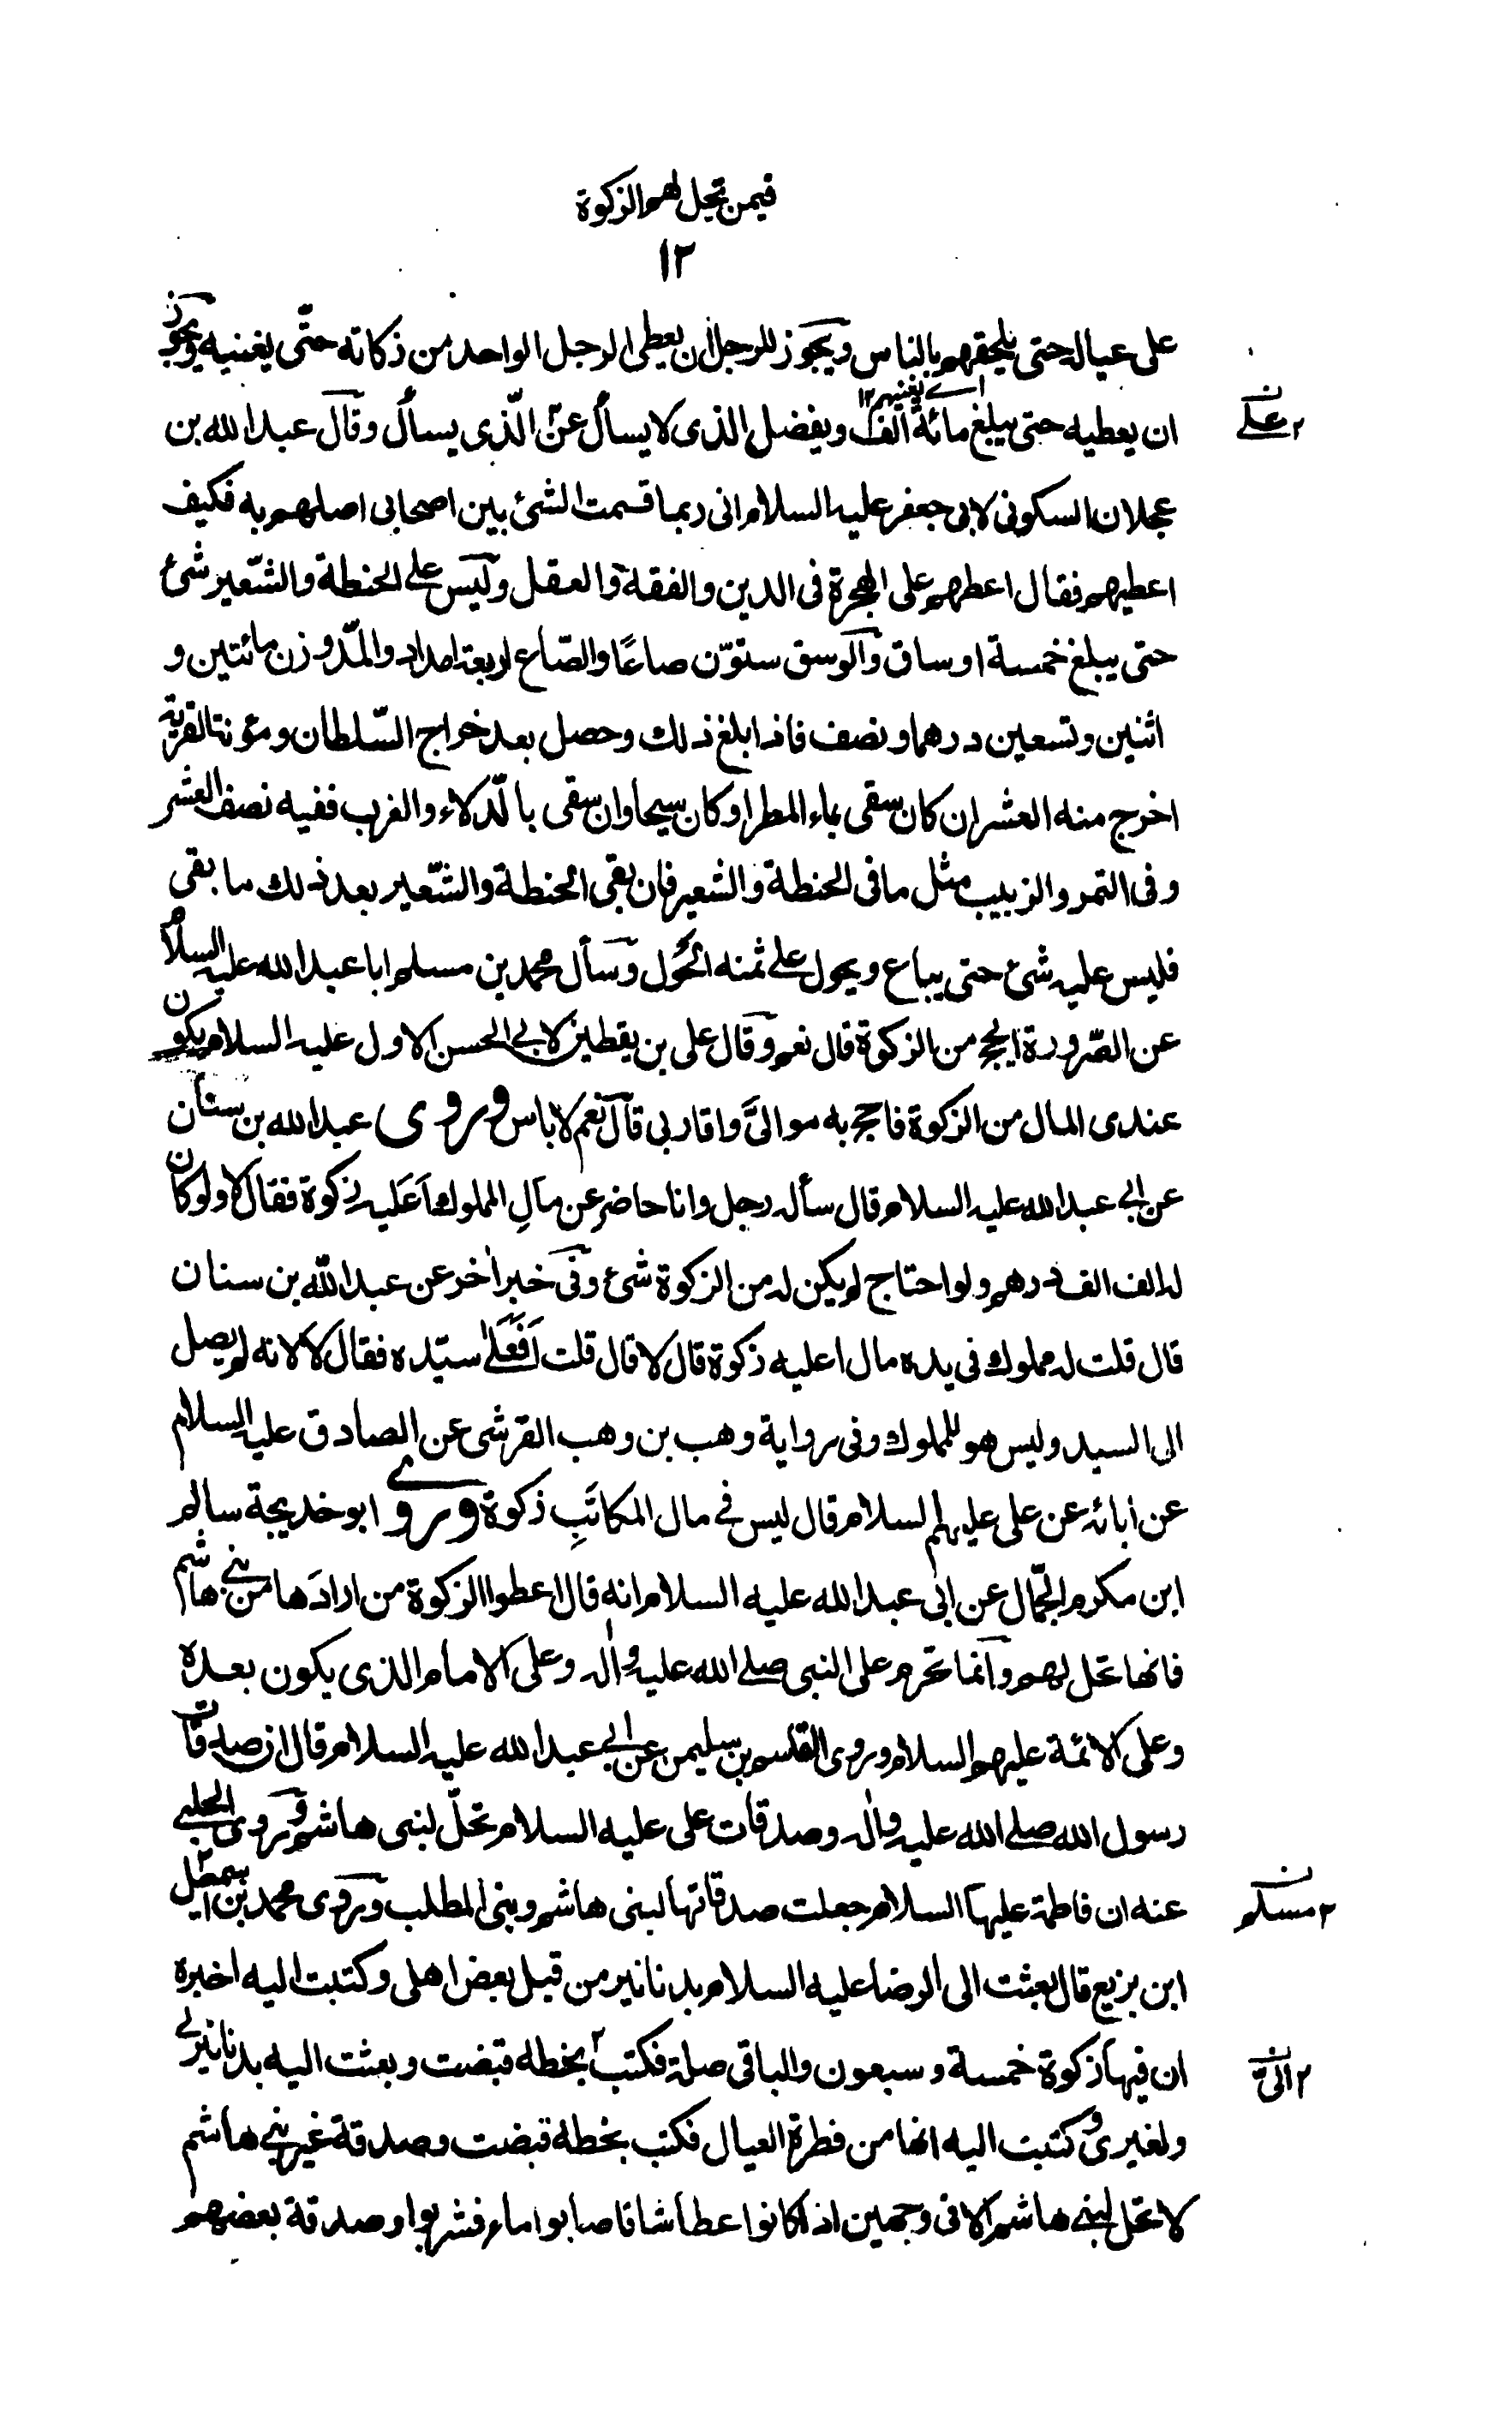 فيمن تحل لهم الزكوة
١٢
على عياله حتى يلحقهم بالناس ويجوز للرجل ان يعطى الرجل الواحد من زكاته حتّى يغنيه ويجوز
اے يغنيهم ١٢
ان يعطيه حتى يبلغ مائة الف ويفضل الذى لا يسأل عن الّذى يسأل وقال عبد الله بن
٢ علے
عجلان السكونى لابى جعفر عليه السلام انى ربما قسمت الشئ بين اصحابى اصلهم به فكيف
اعطيهم فقال اعطهم على الهجرة فى الدين والفقه والعقل وليس على الحنطة والشّعير شئ
حتى يبلغ خمسة اوساق والوسق ستوّن صاعًا والصّاع اربعة امداد والمدّ وزن مائتين و
اثنين وتسعين درهما ونصف فاذا بلغ ذلك وحصل بعد خراج السّلطان ومؤنة القرية
اخرج منه العشر ان كان سقى بماء المطر او كان سيحا وان سقى بالّدلاء والغرب ففيه نصف العشر
وفى التمر والزبيب مثل ما فى الحنطة والشعير فان بقى الحنطة والشّعير بعد ذلك ما بقى
فليس عليه شئ حتى يباع ويحول على ثمنه الحَول وسأل محمد بن مسلم ابا عبد الله عليه السلام
عن الصّرورة ايحج من الزكوة قال نعم وقال على بن يقطين لابى الحسن الاول عليه السلام يكون
عندى المال من الزكوة فاحج به موالىَّ واقاربى قال نعم لا باس وروى عبد الله بن سنان
عن ابى عبد الله عليه السلام قال سأله رجل وانا حاضر عن مالِ المملوك اَعَليه زكوة فقال لا ولو كان
له الف الف درهم ولو احتاج لم يكن له من الزكوة شئ وفى خبر اٰخر عن عبد اللّٰه بن سنان
قال قلت له مملوك فى يده مال اعليه زكوة قال لا قال قلت اَفَعَلىٰ سيّده فقال لا لانه لم يصل
الى السيد وليس هو للمملوك وفى رواية وهب بن وهب القرشى عن الصادق عليه السلام
عن اٰبائه عن على عليهم السلام قال ليس فے مال المكاتَبِ زكوة وروى ابو خديجة سالم
ابن مكرم الجمّال عن ابى عبد الله عليه السلام انه قال اعطوا الزكوة من ارادَها من بنے هاشم
فانها تحل لهم وانما تحرم على النبى صلے الله عليه واٰله وعلى الامام الذى يكون بعده
وعلى الائمة عليهم السلام وروى القاسم بن سليمن عن ابى عبد الله عليه السلام قال ان صدقات
رسول الله صلے الله عليه واٰله وصدقات على عليه السلام تحلّ لبنى هاشم وروى الحلبے
عنه ان فاطمة عليها السلام جعلت صدقاتها لبنى هاشم وبنى المطلب وروى محمد بن اسمعيل
٢ مسلم
ابن بزيع قال بعثت الى الرضا عليه السلام بدنانير من قبل بعض اهلى وكتبت اليه اخبره
ان فيها زكوة خمسة وسبعون والباقى صلة فكتب٢ بخطه قبضت وبعثت اليه بدنانير لے
٢ الىّ
ولغيرى وكتبت اليه انها من فطرة العيال فكتب بخطه قبضت وصدقة غير بنے هاشم
لا تحل لبنے هاشم الا فى وجهين اذا كانوا عطاشا فاصابوا ماء فشربوا وصدقة بعضهم